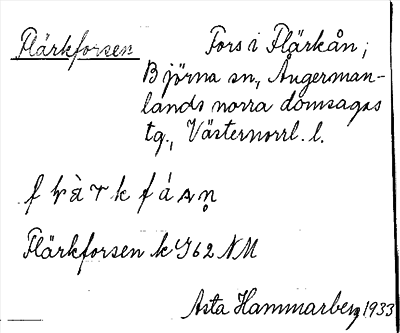 Flärkforsen Fors i Flärkån;
Björna sn, Ångerman-
lands norra domsagas
tg., Västernorrl. l.
Flärkforsen k J62 NM
Asta Hammarberg 1933